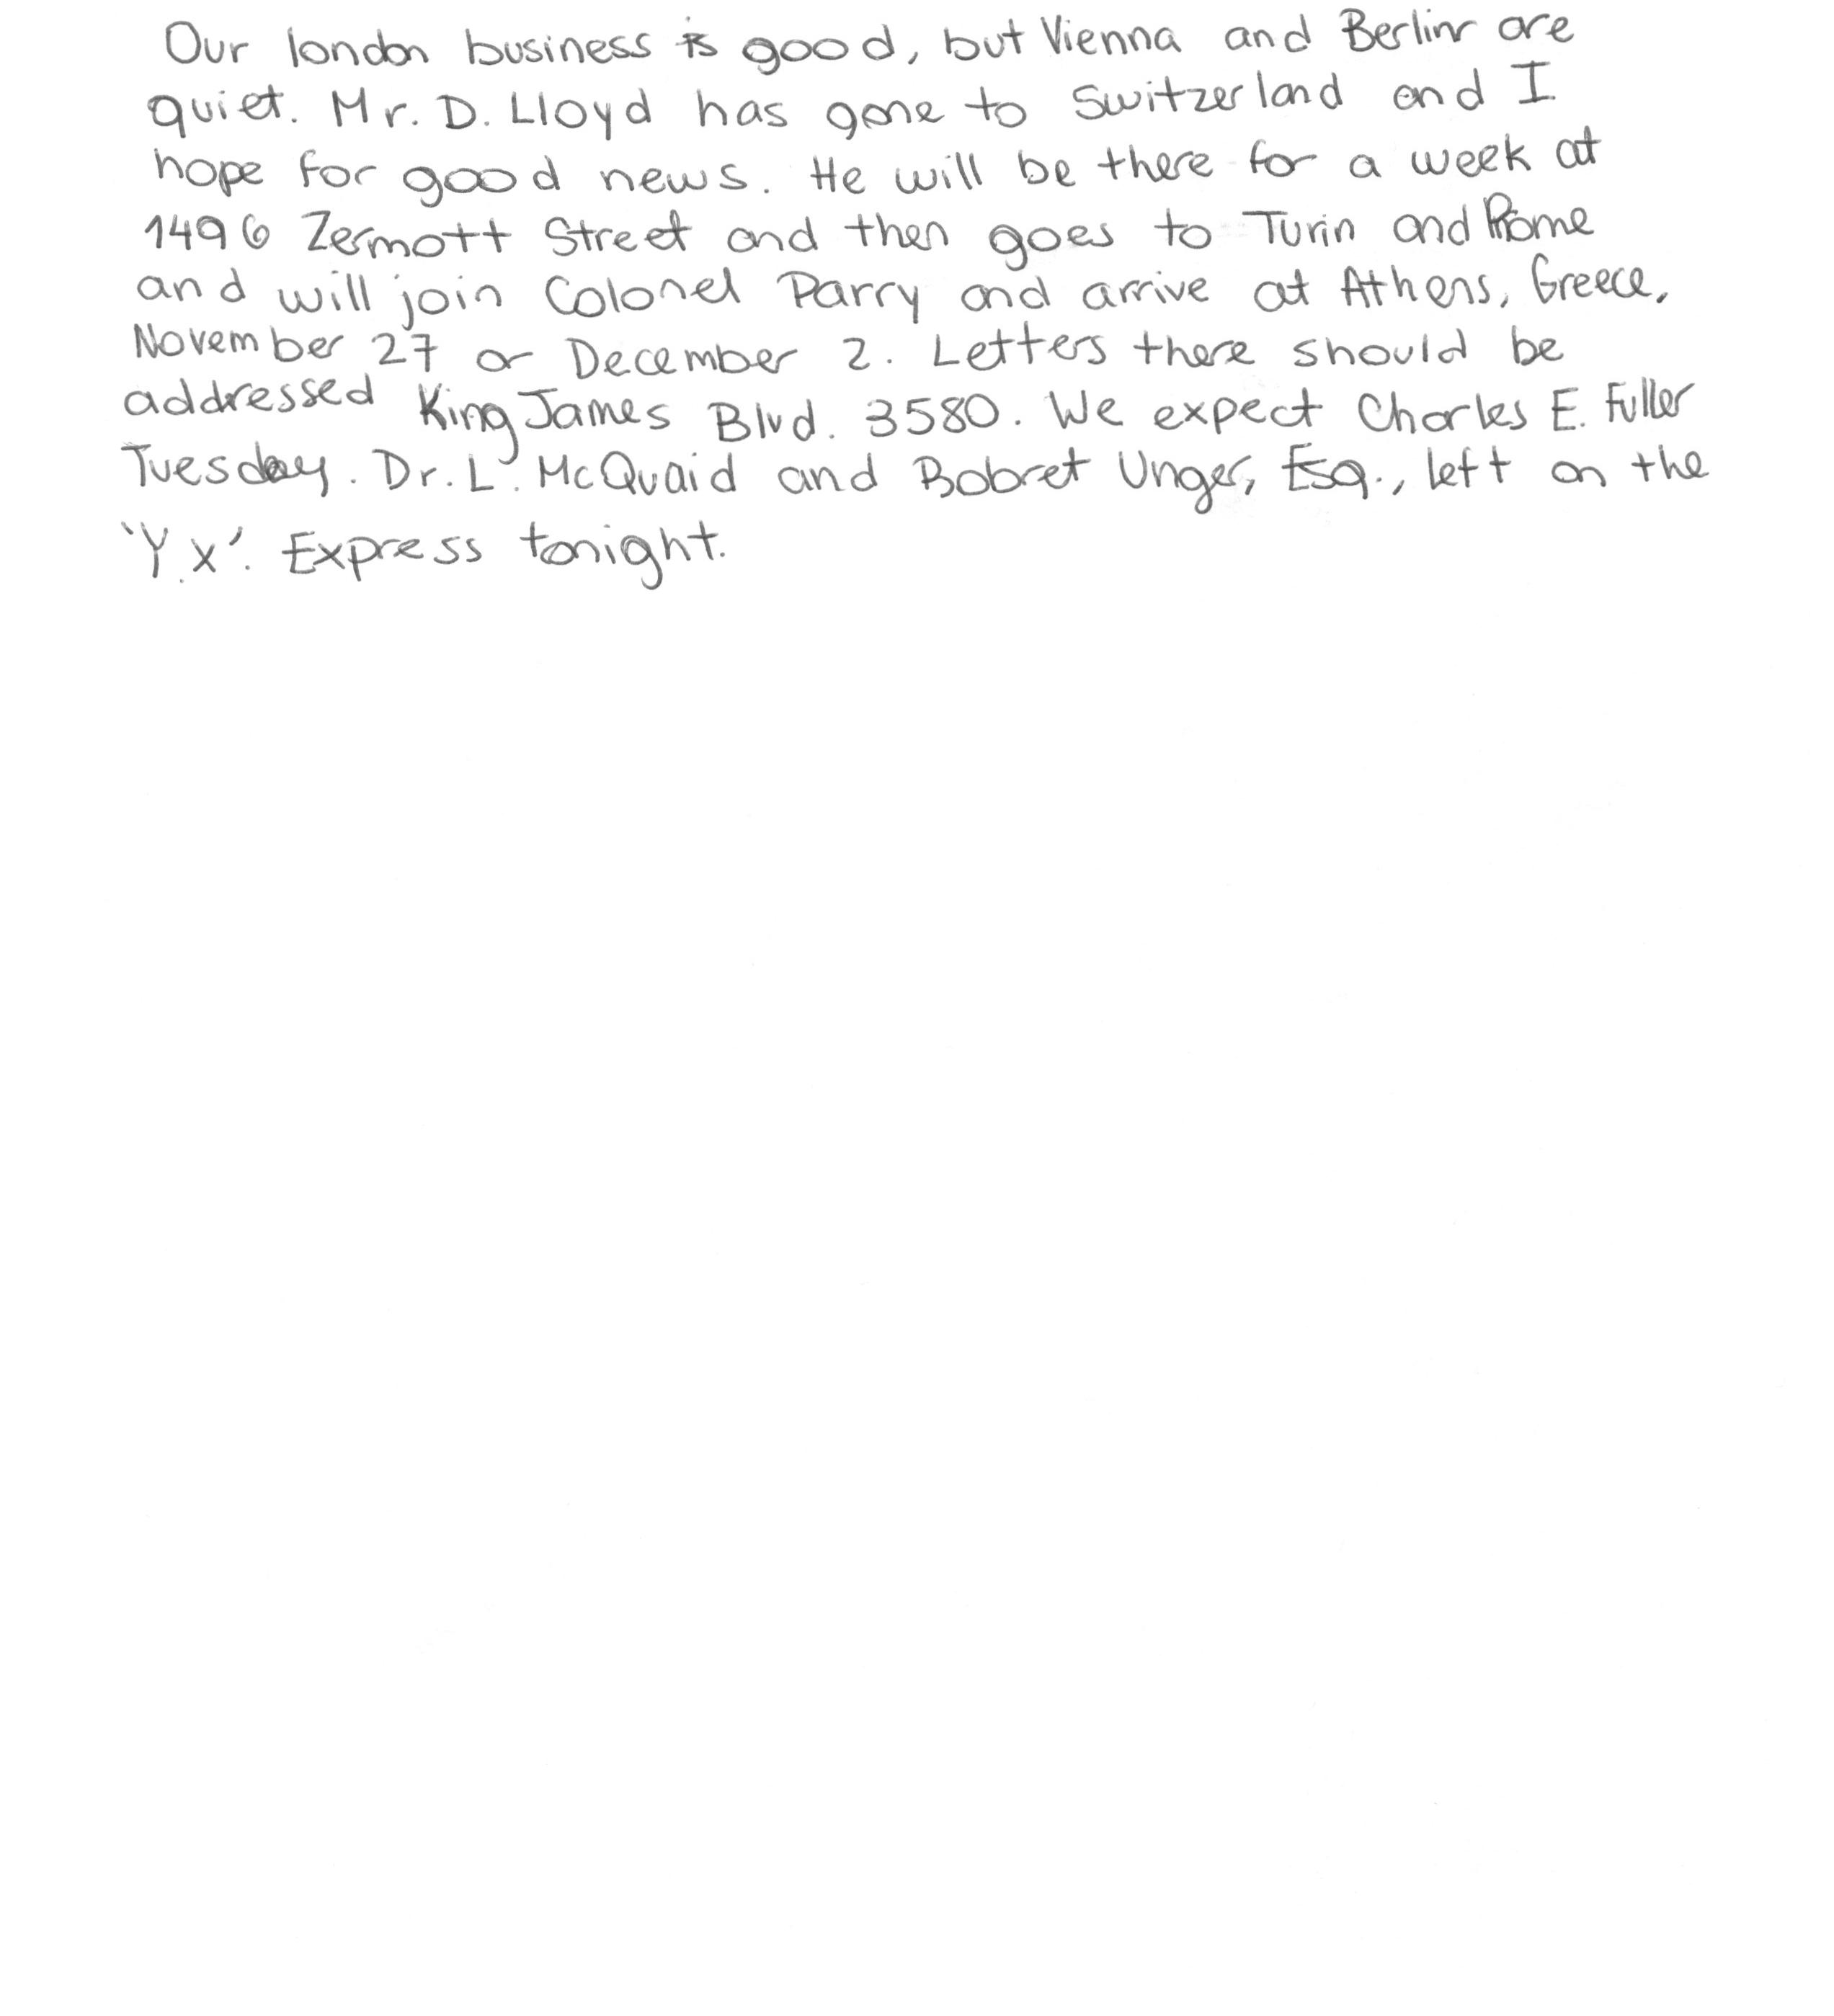 Our london business is good, but Vienna and Berlin are
quiet. Mr. D. Lloyd has gone to Switzerland and I
hope for good news. He will be there for a week at
1496 Zermott Street and then goes to Turin and Rome
and will join Colonel Parry and arrive at Athens, Greece,
November 27 or December 2. Letters there should be
addressed King James Blvd. 3580. We expect Charles E. Fuller
Tuesday. Dr. L. McQuaid and Bobret Unger, Esq., left on the
'Y.X'. Express tonight.